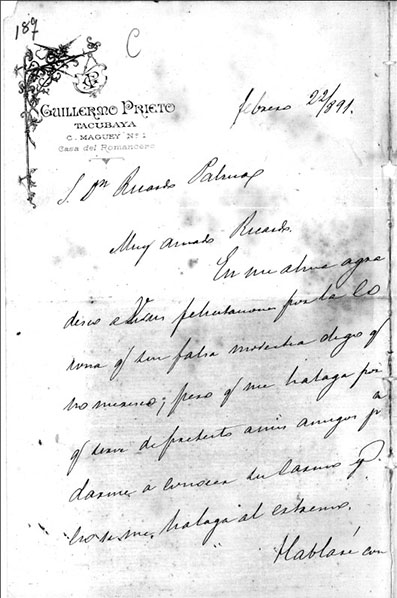 189
C
GUILLERMO PRIETO
TACUBAYA
C. MAGUEY Nº 1
Casa del Romancero
febrero 22/891.
S. Dn Ricardo Palma
Muy amado Ricardo.
En mi alma agra
desco a Vdes felicitaciones por la co
rona qe sin falsa modestia digo qe
no meresco; pero qe me halaga por
qe sirve de pretesto a mis amigos pa
darme a conocer su cariño qe
me halaga al estremo.
Hablaré con